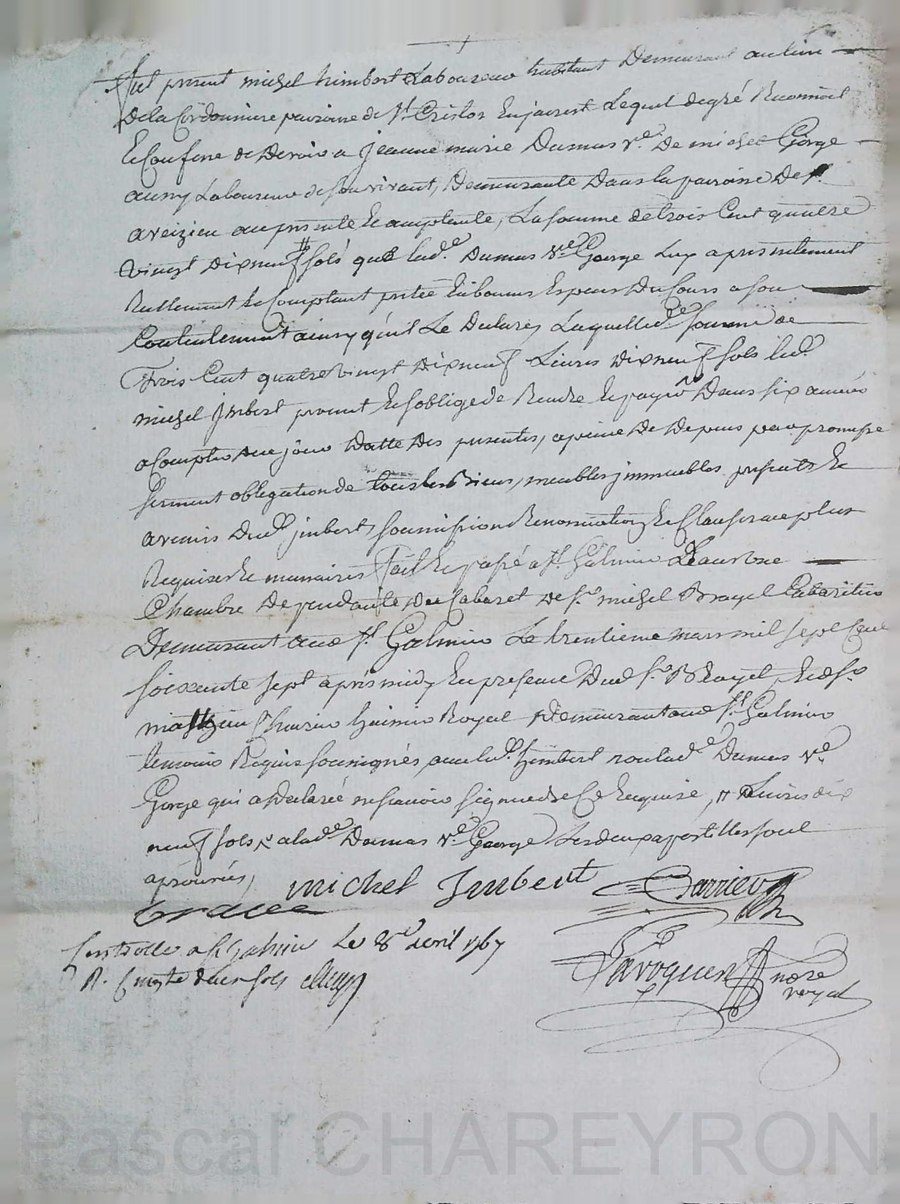 Fut présent michel himbert Laboureur habitant Demeurant au lieu
De la Cordonniere paroisse de St. Cristos En jarest Lequel de gré Reconnoit
Et Confesse de Devoir a jeanne marie Dumas ve. De michel George
aussy Laboureur de son vivant, Demeurante Dans la paroisse De St.
aveizieu ou presente Et acceptante, La somme de trois Cent quatre
vingt Dix neuf sols que lade. Dumas ve. George Luy a presentement
Reellement Et Comptant pretée En bonnes Especes Du Cours a son
Contentement ainsy qu'il Le Declare, Laquelle de. somme de
Trois Cent quatre vingt Dix neuf Livres Dix neuf sols led.
michel jmbert promet Et s'oblige de Rendre Et payer Dans six années
a Compter De ce jour Datte Des presentes, a peine De Depens par promesse
serment obligation de tous les Biens, meubles jmmeubles presents Et
avenirs Dud. jmbert, soumission Renonciation Et Clauses au plus
Requises Et necessaires fait Et passé a St. Galmier Dans une
Chambre Dependante Du Cabaret De sr. michel Royet Cabaretier
Demeurant aud. St. Galmier Le trentieme mars mil sept Cent
soixante sept aprés midy En presence Dud. sr. Royet, Et de sr.
mathieu Royet Demeurant aud. St. Galmier
temoins Requis soussignés, avec led. himbert non lade. Dumas ve.
George qui a Declarée ne sçavoir signer de Ce Enquise, # Livres dix
neuf sols, x a lade. Dumas ve. George Les deux apostilles sont
aprouvés,
michel Jmbert
Controllé a St Galmier Le 8e. avril 1767
R.
sols
André
royet
Pascal CHAREYRON